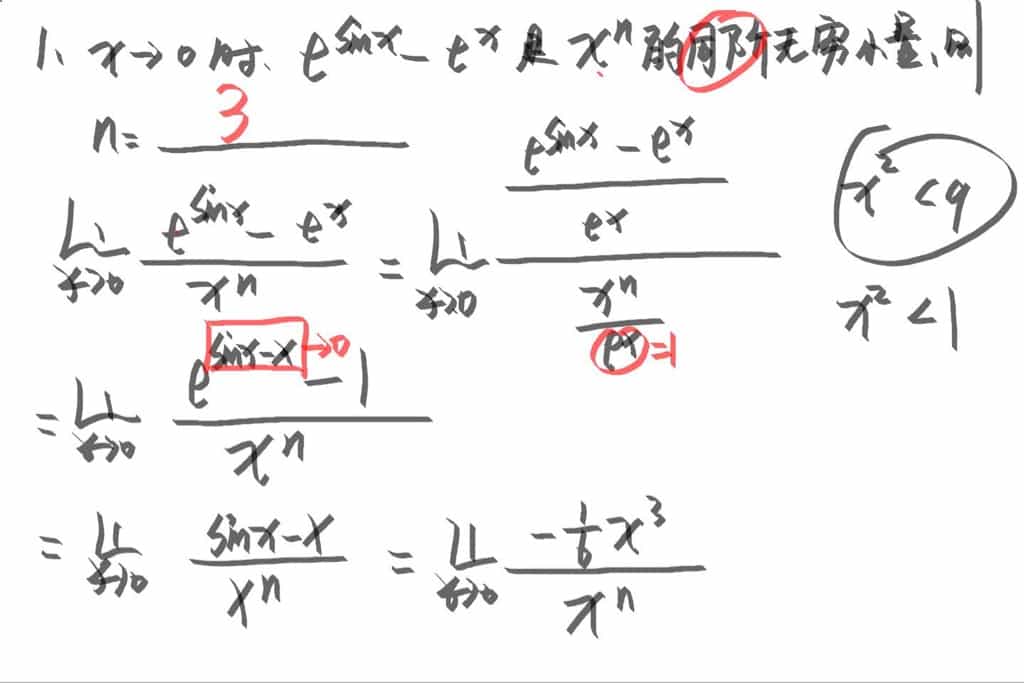 1、x→0时、e^{sinx} - e^x 是 x^n 的同阶无穷小量、则
n = 3
\lim_{x→0} \frac{e^{sinx} - e^x}{x^n} = \lim_{x→0} \frac{\frac{e^{sinx} - e^x}{e^x}}{\frac{x^n}{e^x}} =1
x^2 < 9
x^2 < 1
= \lim_{x→0} \frac{e^{sinx-x} - 1}{x^n} →0
= \lim_{x→0} \frac{sinx-x}{x^n} = \lim_{x→0} \frac{-\frac{1}{6}x^3}{x^n}